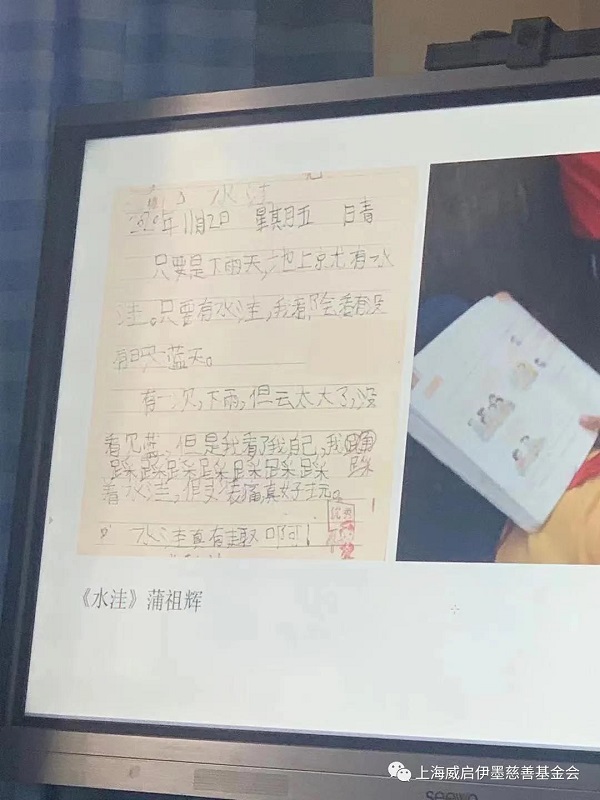 水洼
2020年11月2日 星期五 日青
只要是下雨天,地上京尤有水
洼。只要有水洼,我看
蓝天。
有一次,下雨,但云太大了,没
看见蓝,但是我看了我自己,我
踩踩踩踩踩踩踩 踩
着水洼,
水洼真有趣啊!
《水洼》蒲祖辉
上海威启伊墨慈善基金会
seewo